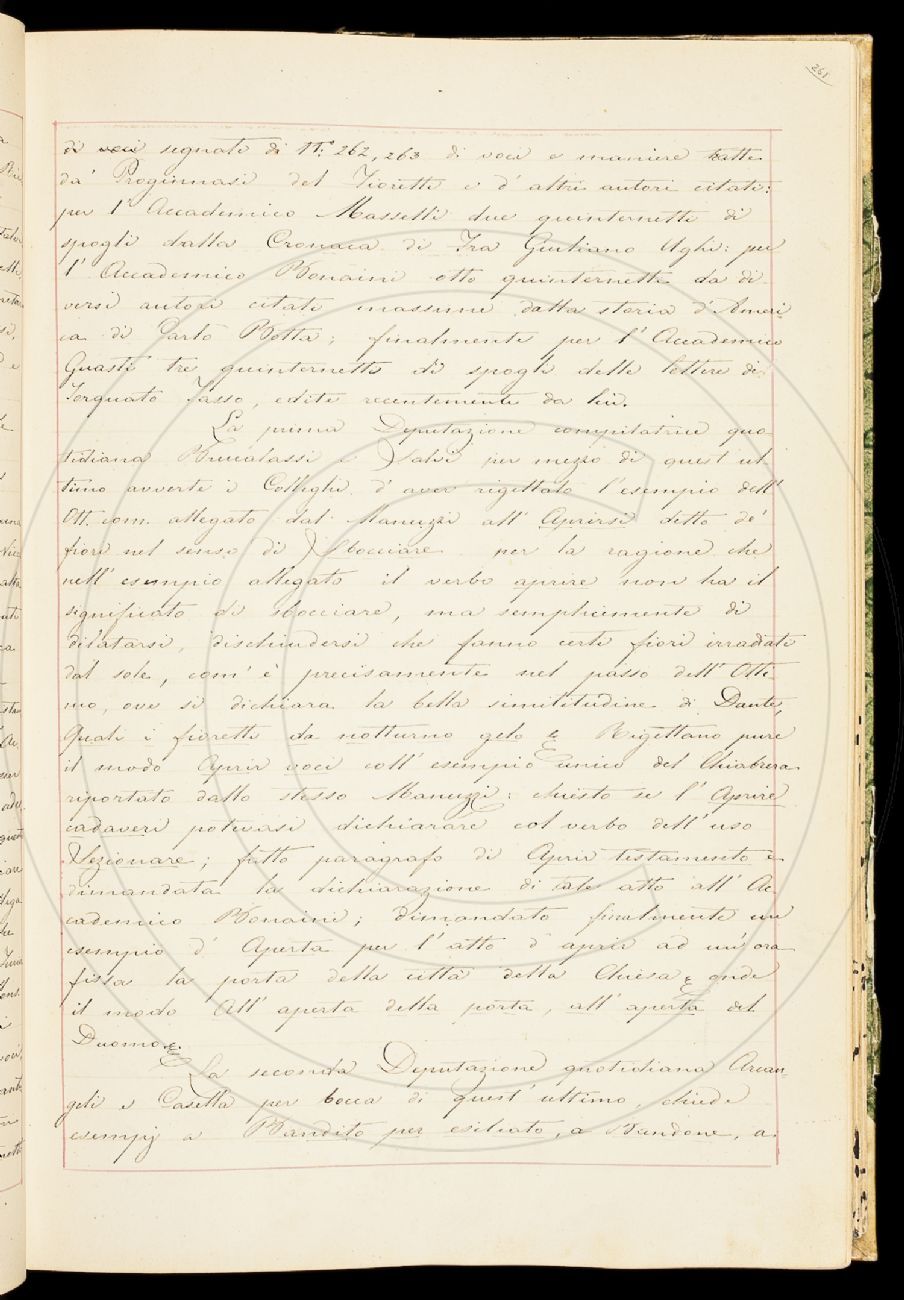 261
di voci segnati di Nⁱ: 262, 263 di voci e maniere tratte
da' Proginnasi del Fioretti e d' altri autori citati:
per l' Accademico Masselli due quinternetti di
spogli dalla Cronaca di Fra Giuliano Ughi: per
l' Accademico Bonaini otto quinternetti da di
versi autori citati massime dalla storia d' Ameri
ca di Carlo Botta; finalmente per l' Accademico
Guasti tre quinternetti di spogli delle lettere di
Torquato Tasso, edite recentemente da lui.
La prima Deputazione compilatrice quo-
tidiana Brucalassi e Salvi per mezzo di quest' ul-
timo avverte i Colleghi d' aver rigettato l' esempio dell'
Ott. com. allegato dal Manuzzi all' Aprirsi detto de'
fiori nel senso di Sbocciare per la ragione che
nell' esempio allegato il verbo aprire non ha il
significato di sbocciare, ma semplicemente di
dilatarsi, dischiudersi che fanno certi fiori irradiati
dal sole, com' è precisamente nel passo dell' Otti
mo, ove si dichiara la bella similitudine di Dante,
Quali i fioretti da notturno gelo &. Rigettano pure
il modo Aprir voci coll' esempio unico del Chiabrera
riportato dallo stesso Manuzzi: chiesto se l' Aprire
cadaveri potevasi dichiarare col verbo dell' uso
Sezionare; fatto paragrafo di Aprir testamento e
dimandata la dichiarazione di tale atto all' Ac-
cademico Bonaini; dimandato finalmente un
esempio d' Aperta per l' atto d' aprir ad un' ora
fissa la porta della città della Chiesa & onde
il modo All' aperta della porta, all' aperta del
Duomo &.
La seconda Deputazione quotidiana Arcan-
geli e Casella per bocca di quest' ultimo, chiede
esempj a Bandito per esiliato, a Bandone, a